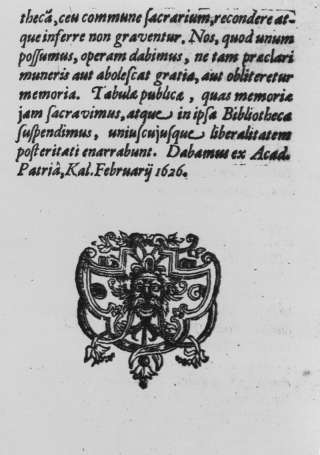 thecâ, ceu commune ſacrarium, recondere at-
que inferre non graventur. Nos, quod unum
poſſumus, operam dabimus, ne tam præclari
muneris aut aboleſcat gratia, aut obliteretur
memoria. Tabulæ publicæ, quas memoriæ
jam ſacravimus, atque in ipſa Bibliotheca
ſuſpendimus, uniuſcujuſque liberalitatem
poſteritati enarrabunt. Dabamus ex Acad.
Patriâ, Kal. Februarij 1626.